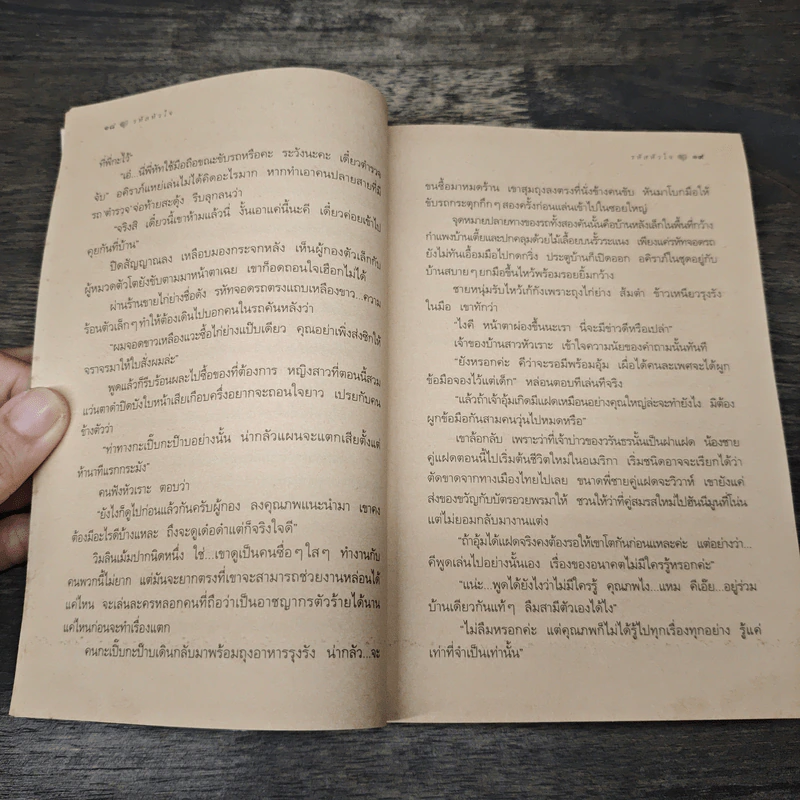 ๑๘ รหัสหัวใจ
ที่พี่กะไว้"
"เอ่ นี่พี่หัทใช้มือถือขณะขับรถหรือคะ ระวังนะคะ เดี๋ยวตำรวจ
จับ" อคิราภ์แหย่เล่นไม่ได้คิดอะไรมาก หากทำเอาคนปลายสายที่มี
รถ 'ตำรวจ' จ่อท้ายสะดุ้ง รีบลุกลนว่า
"จริงสิ เดี๋ยวนี้เขาห้ามแล้วนี่ งั้นเอาแค่นี้นะคี เดี๋ยวค่อยเข้าไป
คุยกันที่บ้าน"
ปิดสัญญาณลง เหลือบมองกระจกหลัง เห็นผู้กองตัวเล็กกับ
ผู้หมวดตัวโตยังขับตามมาหน้าตาเฉย เขาก็อดถอนใจเฮือกไม่ได้
ผ่านร้านขายไก่ย่างชื่อดัง รหัทจอดรถตรงแถบเหลืองขาว...ความ
ร้อนตัวเล็กๆ ทำให้ต้องเดินไปบอกคนในรถคันหลังว่า
"ผมจอดขาวเหลืองแวะซื้อไก่ย่างแป๊บเดียว คุณอย่าเพิ่งส่งซิกให้
จราจรมาให้ใบสั่งผมล่ะ"
พูดแล้วก็รีบร้อนผละไปซื้อของที่ต้องการ หญิงสาวที่ตอนนี้สวม
แว่นตาดำปิดบังใบหน้าเสียเกือบครึ่งอยากจะถอนใจยาว เปรยกับคน
ข้างตัวว่า
"ท่าทางกะเปิ๊บกะป๊าบอย่างนั้น น่ากลัวแผนจะแตกเสียตั้งแต่
ห้านาทีแรกกระมัง"
คนฟังหัวเราะ ตอบว่า
"ยังไงก็ดูไปก่อนแล้วกันครับผู้กอง ลงคุณภพแนะนำมา เขาคง
ต้องมีอะไรดีบ้างแหละ ถึงจะดูเด๋อด๋าแต่ก็จริงใจดี"
วิมลินเม้มปากนิดหนึ่ง ใช่...เขาดูเป็นคนซื่อๆ ใสๆ ทำงานกับ
คนพวกนี้ไม่ยาก แต่มันจะยากตรงที่เขาจะสามารถช่วยงานหล่อนได้
แค่ไหน จะเล่นละครหลอกคนที่ถือว่าเป็นอาชญากรตัวร้ายได้นาน
แค่ไหนก่อนจะทำเรื่องแตก
คนกะเปิ๊บกะป๊าบเดินกลับมาพร้อมถุงอาหารรุงรัง น่ากลัว...จะ
รหัสหัวใจ ๑๙
ขนซื้อมาหมดร้าน เขาสุมถุงลงตรงที่นั่งข้างคนขับ หันมาโบกมือให้
ขับรถกระตุกกึกๆ สองครั้งก่อนแล่นเข้าไปในซอยใหญ่
จุดหมายปลายทางของรถทั้งสองคันนั้นคือบ้านหลังเล็กในพื้นที่กว้าง
กำแพงบ้านเตี้ยและปกคลุมด้วยไม้เลื้อยบนรั้วระแนง เพียงแค่รหัทจอดรถ
ยังไม่ทันเอื้อมมือไปกดกริ่ง ประตูบ้านก็เปิดออก อคิราภ์ในชุดอยู่กับ
บ้านสบายๆ ยกมือขึ้นไหว้พร้อมรอยยิ้มกว้าง
ชายหนุ่มรับไหว้เก้กังเพราะถุงไก่ย่าง ส้มตำ ข้าวเหนียวรุงรัง
ในมือ เขาทักว่า
"ไงคี หน้าตาผ่องขึ้นนะเรา นี่จะมีข่าวดีหรือเปล่า"
เจ้าของบ้านสาวหัวเราะ เข้าใจความนัยของคำถามนั้นทันที
"ยังหรอกค่ะ คีว่าจะรอมีพร้อมอุ้ม เผื่อได้คนละเพศจะได้ผูก
ข้อมือจองไว้แต่เด็ก" หล่อนตอบทีเล่นทีจริง
"แล้วถ้าเจ้าอุ้มเกิดมีแฝดเหมือนอย่างคุณใหญ่ล่ะจะทำยังไง มิต้อง
ผูกข้อมือกันสามคนวุ่นไปหมดหรือ"
เขาล้อกลับ เพราะว่าที่เจ้าบ่าวของวรันธรนั้นเป็นฝาแฝด น้องชาย
คู่แฝดตอนนี้ไปเริ่มต้นชีวิตใหม่ในอเมริกา เริ่มชนิดอาจจะเรียกได้ว่า
ตัดขาดจากทางเมืองไทยไปเลย ขนาดพี่ชายคู่แฝดจะวิวาห์ เขายังแค่
ส่งของขวัญกับบัตรอวยพรมาให้ ชวนให้ว่าที่คู่สมรสใหม่ไปฮันนีมูนที่โน่น
แต่ไม่ยอมกลับมางานแต่ง
"ถ้าอุ้มได้แฝดจริงคงต้องรอให้เขาโตกันก่อนแหละค่ะ แต่อย่างว่า...
คีพูดเล่นไปอย่างนั้นเอง เรื่องของอนาคตไม่มีใครรู้หรอกค่ะ"
"แน่ะ...พูดได้ยังไงว่าไม่มีใครรู้ คุณภพไง...แหม คีเอ๊ย...อยู่ร่วม
บ้านเดียวกันแท้ๆ ลืมสามีตัวเองได้ไง"
"ไม่ลืมหรอกค่ะ แต่คุณภพก็ไม่ได้รู้ไปทุกเรื่องทุกอย่าง รู้แค่
เท่าที่จำเป็นเท่านั้น"